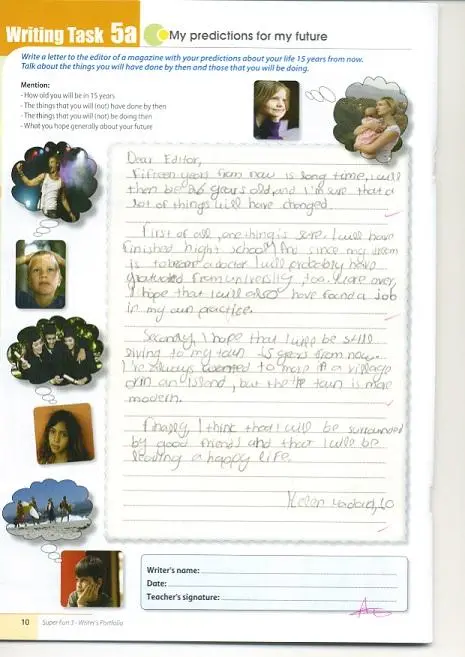 Writing Task 5a
My predictions for my future
Write a letter to the editor of a magazine with your predictions about your life 15 years from now.
Talk about the things you will have done by then and those that you will be doing.
Mention:
- How old you will be in 15 years
- The things that you will (not) have done by then
- The things that you will (not) be doing then
- What you hope generally about your future
Dear Editor,
Fifteen years from now is long time, I will
then be 26 years old, and I'm sure that a
lot of things will have changed.
First of all, one thing is sure. I will have
finished hight school! And since my dream
is to a doctor I will probably have
graduated from university, too. More over,
I hope that I will also have found a job
in my own practice.
Secondly, I hope that I will be still
living to my town 15 years from now.
I've always wanted to move in a village
or in an island, but the town is more
modern.
Finally, I think that I will be surrounded
by good friends and that I will be
leading a happy life.
Helen
Writer's name:
Date:
Teacher's signature:
10 Super Fun 3 - Writer's Portfolio